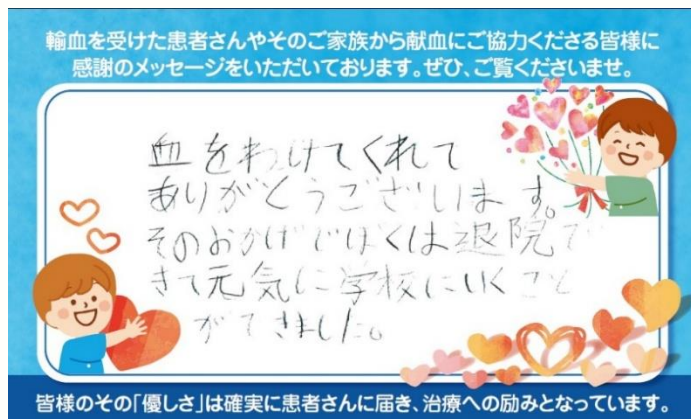 輸血を受けた患者さんやそのご家族から献血にご協力くださる皆様に
感謝のメッセージをいただいております。ぜひ、ご覧くださいませ。
血をわけてくれて
ありがとうございます。
そのおかげでぼくは退院で
きて元気に学校にいくこと
ができました。
皆様のその「優しさ」は確実に患者さんに届き、治療への励みとなっています。